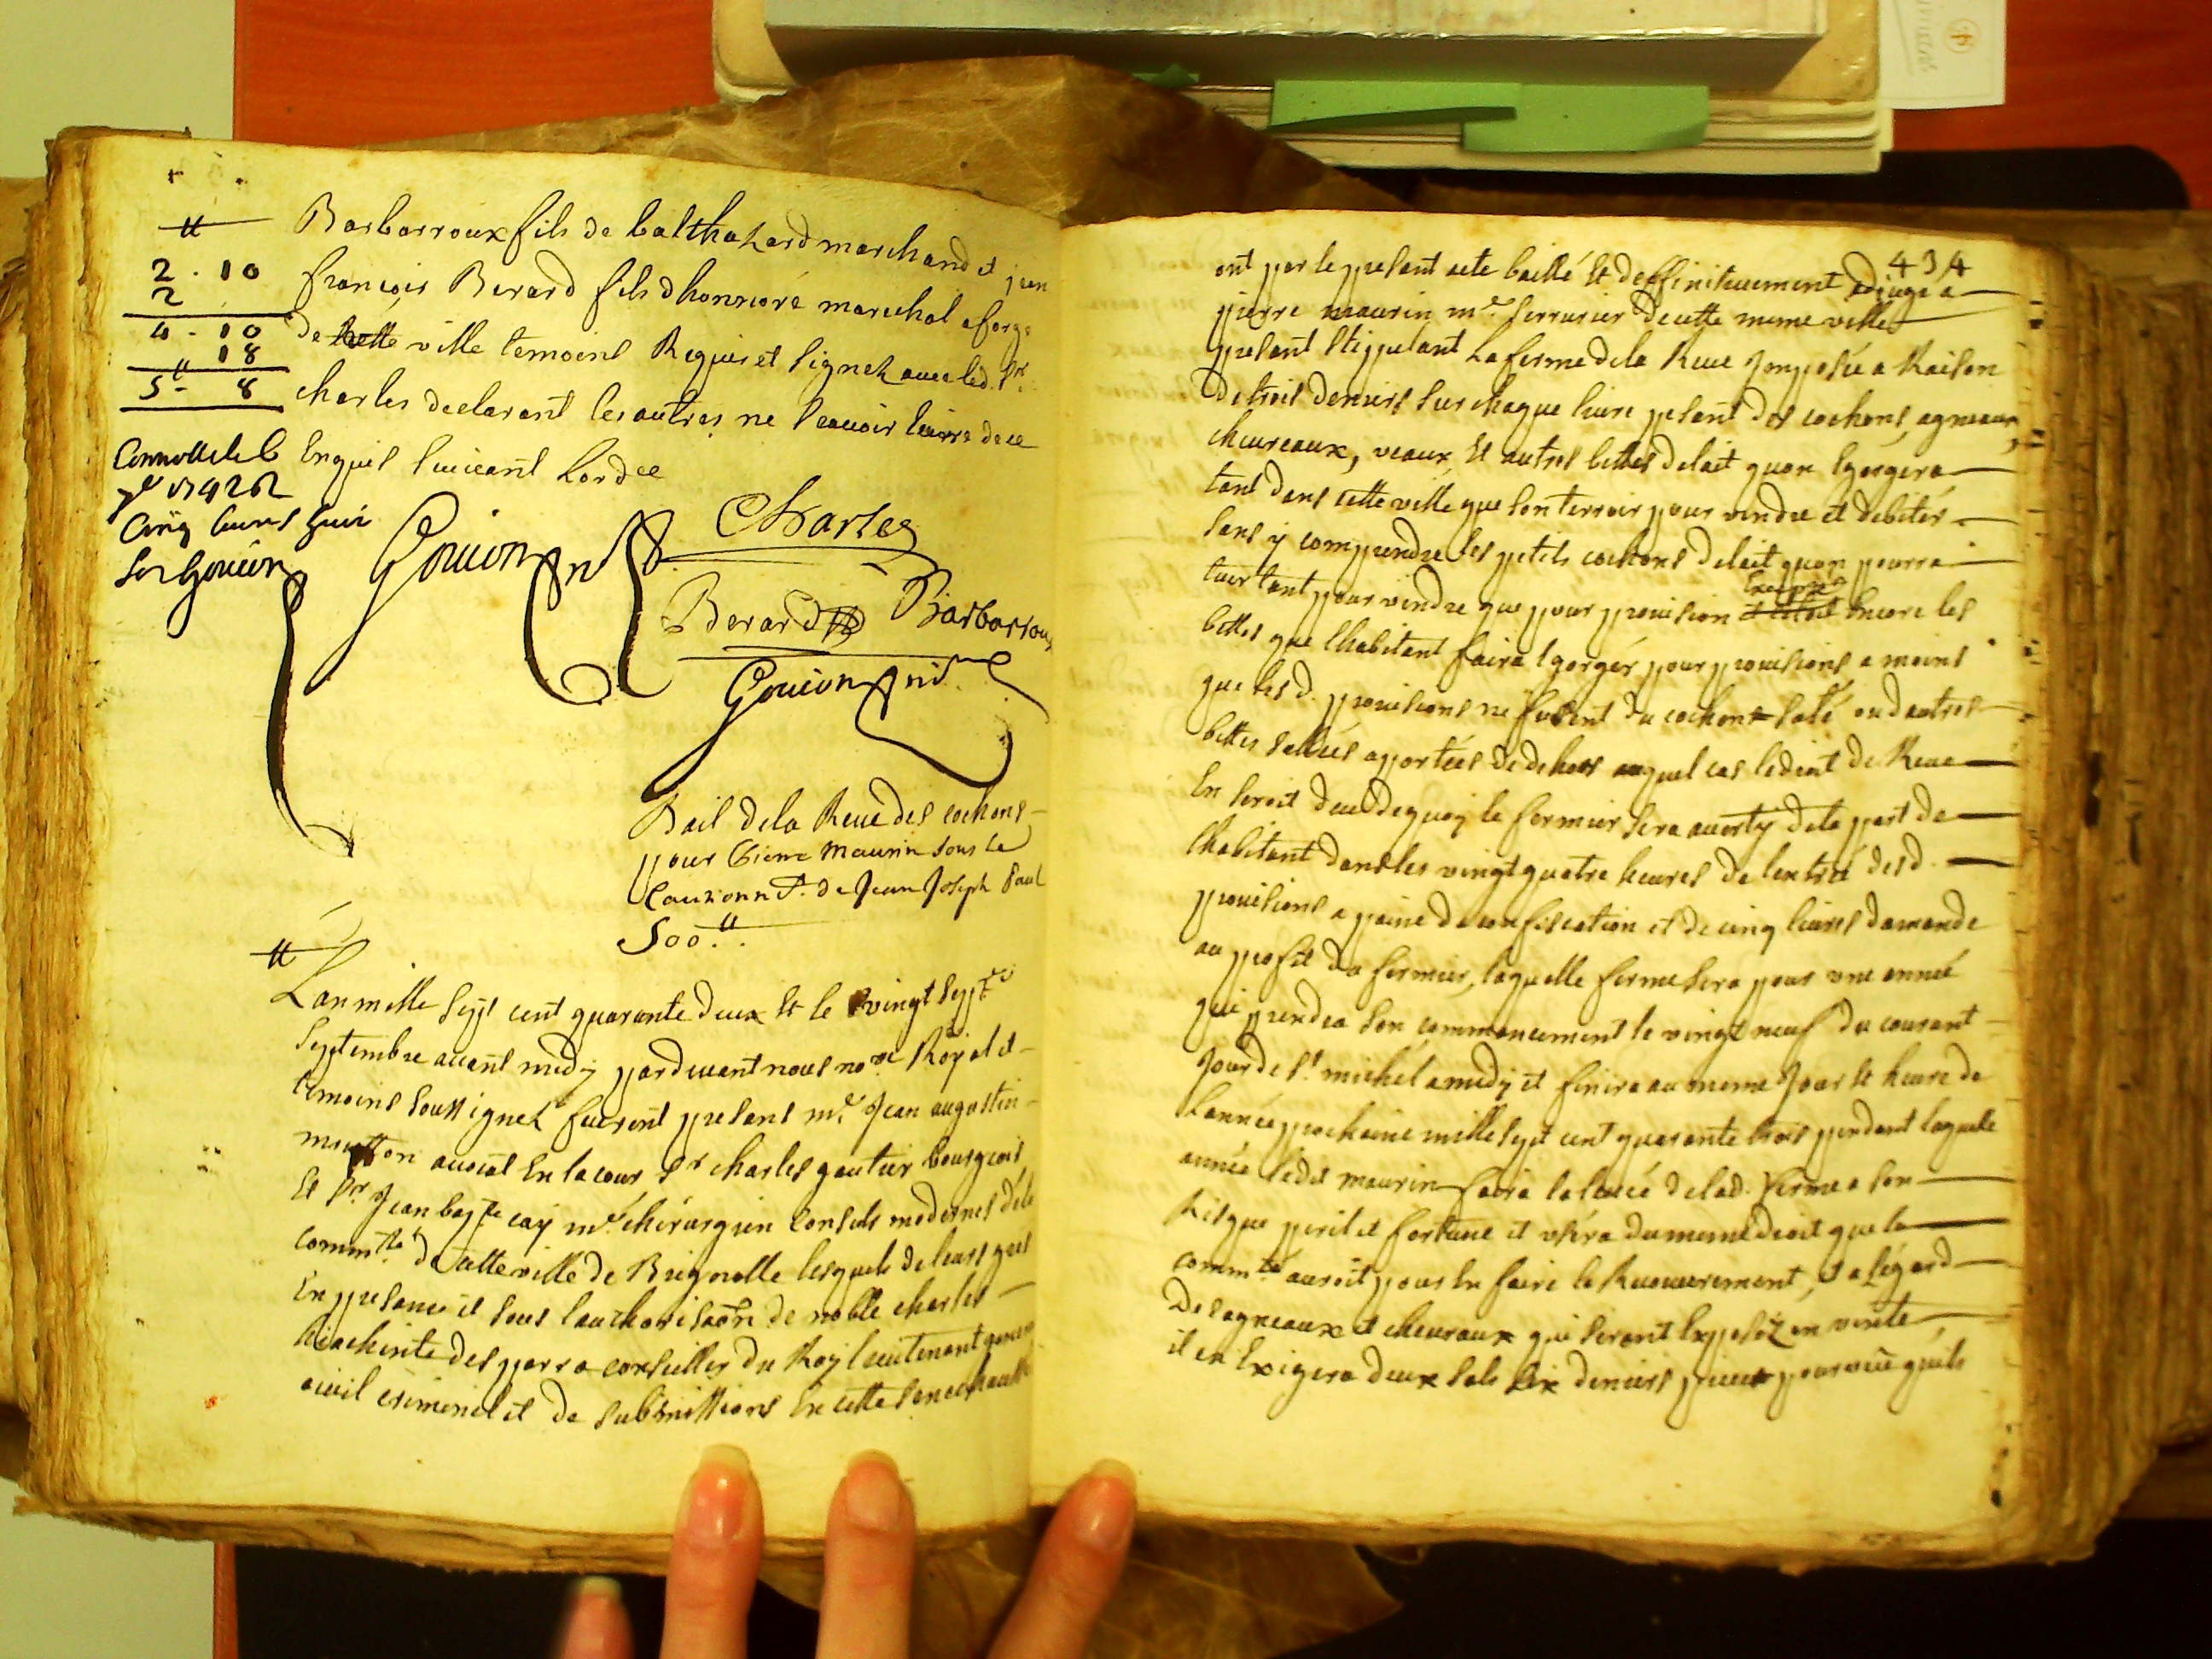 Barbarroux fils de balthazard marchand et jean
francois Berard fils dhonnoré marechal a forge
de cette ville temoins Requis et signez avec led. Sr.
charles declarant les autres ne scavoir escrire de ce
Enquis suivant Lordce
2 . 10
2
4 . 10
18
5 - 8
Conrolle le 6
1742
Cinq livres huit
Sr Gouion
Gouion
Charles
Berard
Barbarroux
Gouion
Bail dela Reve des cochons
pour Pierre Maurin sous le
Cauzionnt. de Jean Joseph Paul
500.tt.
Lan mille sept cent quarante deux et le vingt sept
Septembre avant midy pardevant nous nore Royal et
temoins soussignez furent presans me. Jean augustin
moutton avocat En la cour sr charles gautier bourgeois
Et sr. Jean bapte cay me chirurgien Consuls modernes dela
commté. de cette ville de Brignolle lesquels de leurs grés
En presance et sous lauthorisaõn de noble charles
hiachinte desparra conseiller du Roy lieutenant general
civil criminel et de submissions En cette senechaussée
434
ont par le presant acte baillé Et deffinitivement adjugé a
pierre maurin me. serrurier de cette meme ville
presant stipulant La ferme dela Reve Jmposée a Raison
de trois deniers sur chaque livre pesant des cochons, agneaux,
chevreaux, veaux Et autres bettes delait quon Egorgera
tant dans cette ville que son terroir pour vendre et debiter
sans y comprendre les petits cochons delait quon pourra
tuer tant pour vendre que pour provision et encore les
bettes que lhabitant faira Egorger pour provisions a moins
que lesd. provisions ne fussent du cochon salé ou dautres
bettes sallées aportées de dehors auquel cas ledroit de Reve
En seroit deu dequoy le fermier sera averty dela part de
lhabitant dans les vingt quatre heures de lentrée desd.
provisions a peine de confiscation et de cinq livres damande
au profit du fermier, laquelle ferme sera pour une année
qui prendra son commancement le vingt neuf du courant
Jour de st. michel a midy et finira au meme Jour Et heure de
lannée prochaine mille sept cent quarante trois pendant laquelle
année ledit maurin faira la levée de lad. ferme a son
Risque peril et fortune et usera du meme droit que la
commté auroit pour En faire le Recouvrement, et a légard
des agneaux et chevraux qui seront Exposéz en vente
il en Exigera deux sols six deniers piece pourveu quils